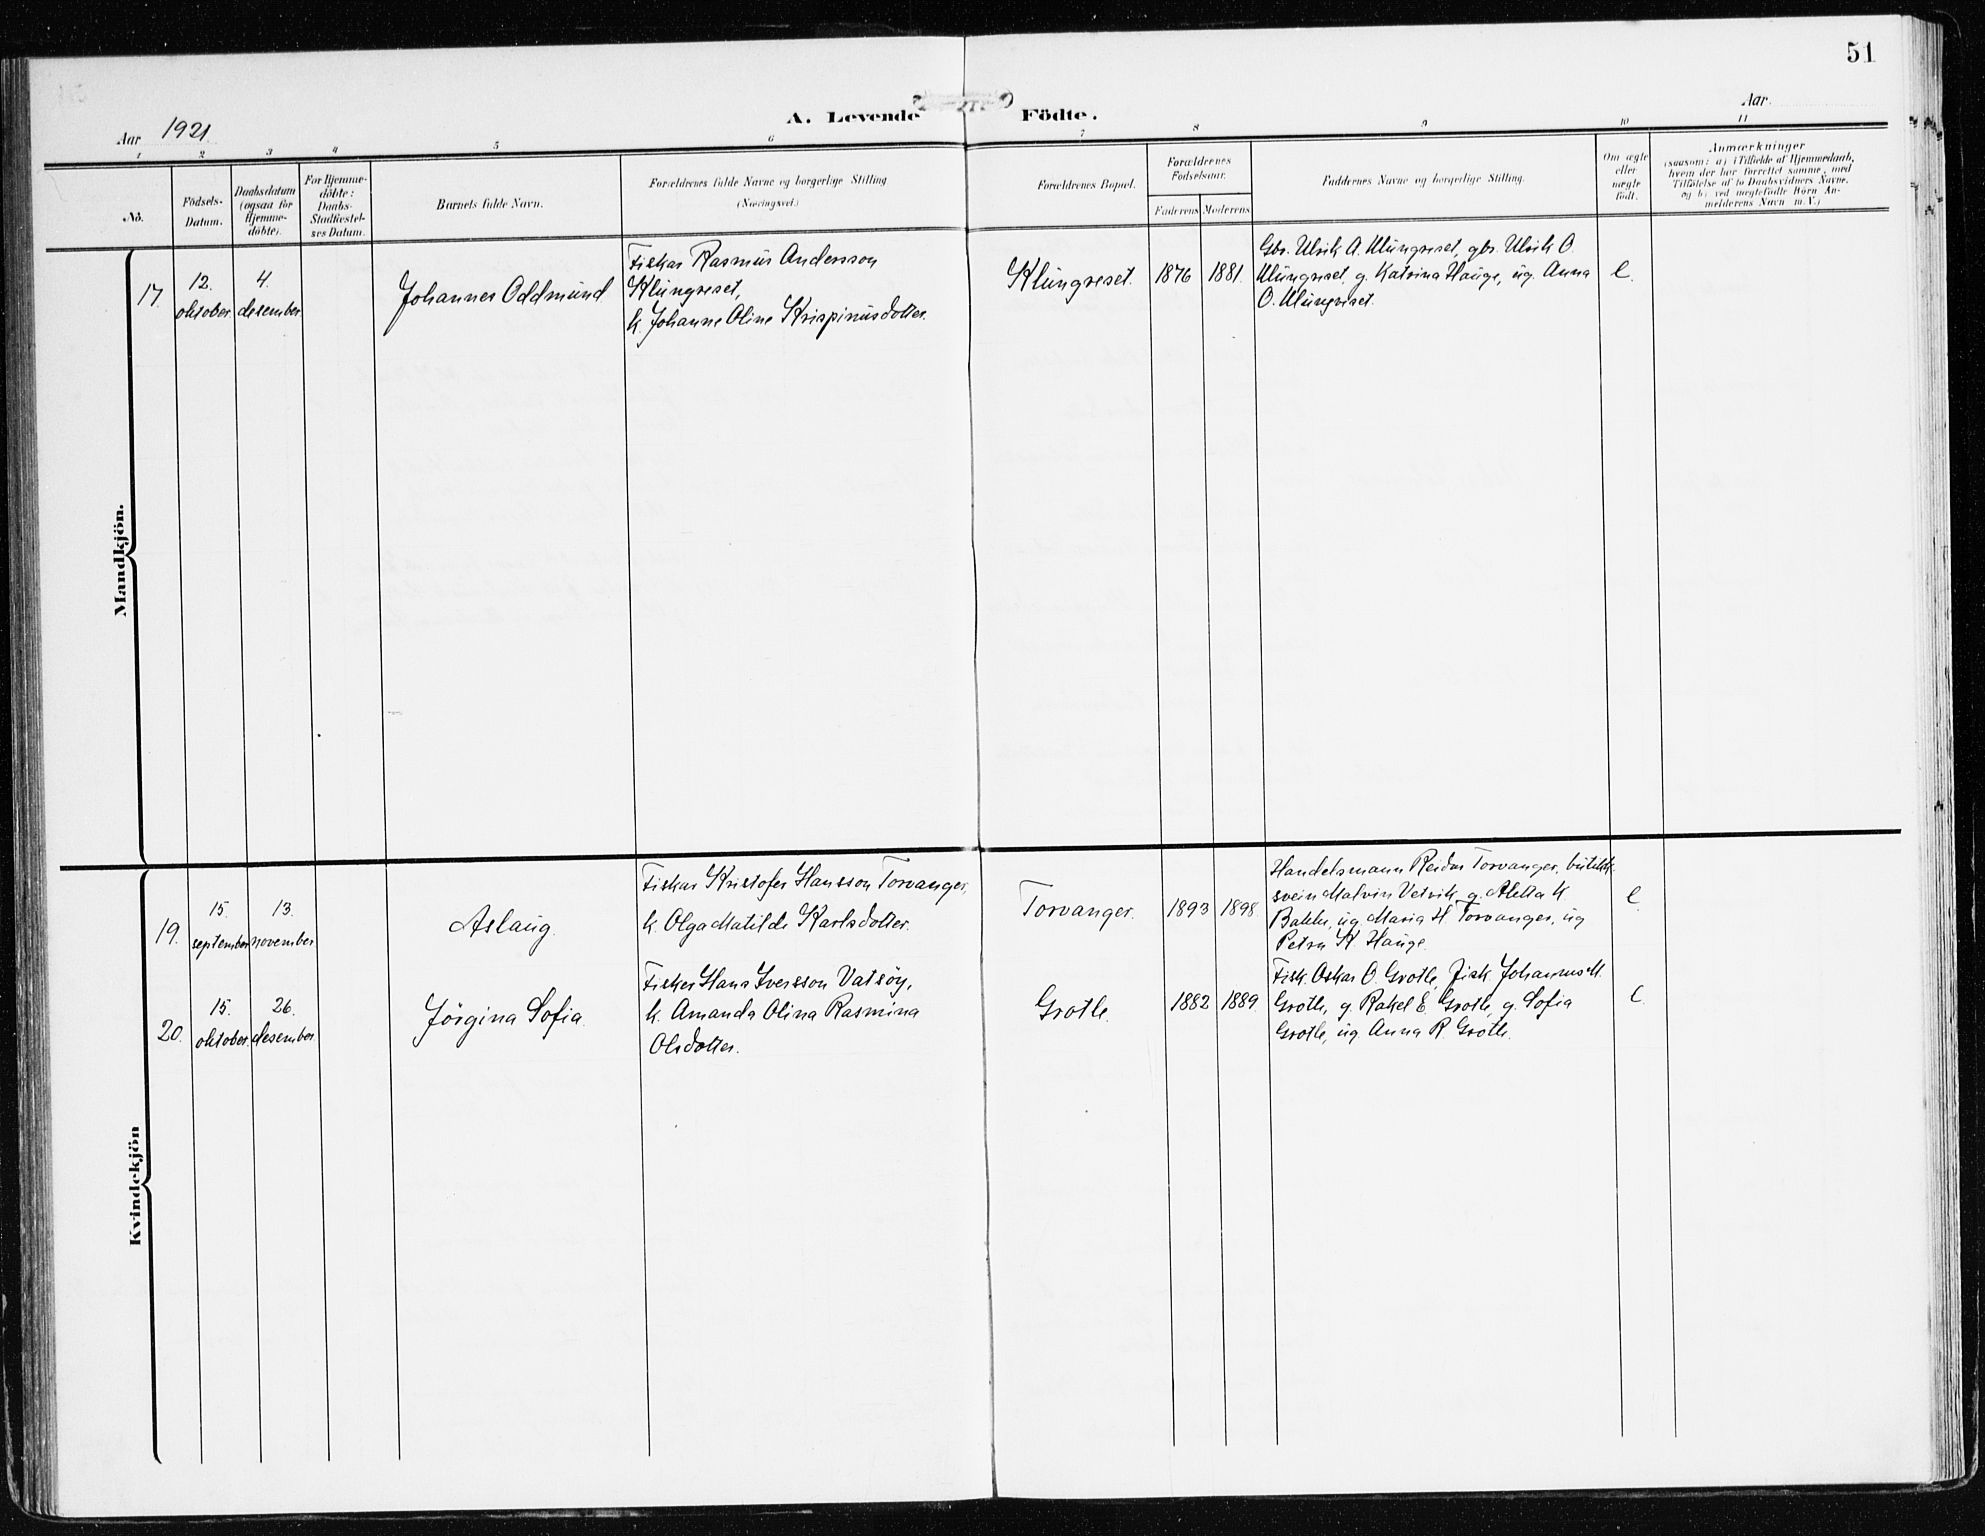 51
Aar 1921
A. Levende Födte.
Aar
1 2 3 4 5 6 7 8 9 10 11
No.
Födsels-
Datum.
Daabsdatum
(ogsaa for
Hjemme-
döbte).
For Hjemme-
döbte:
Daabs-
Stadfæstel-
ses Datum.
Barnets fulde Navn.
Forældrenes fulde Navne og borgerlige Stilling
(Næringsvei.)
Forældrenes Bopæl.
Forældrenes
Födselsaar.
Faderens Moderens
Faddernes Navne og borgerlige Stilling.
Om ægte
eller
uægte
født.
Anmærkninger
(saasom: a) i Tilfælde af Hjemmedaab,
hvem der har forrettet samme, med
Tilföielse af to Daabsvidners Navne.
og b) ved uægtefödte Börn An-
melderens Navn m. V.)
Mandkjön.
17.
12.
oktober.
4.
desember.
Johannes Oddmund
Fiskar Rasmus Andersson
Klungreset,
k. Johanne Oline Krispinusdotter.
Klungreset.
1876
1881.
Gbr. Ulrik A. Klungreset, gbr. Ulrik O
Klungreset, g. Katrina Hauge, ug. Anna
O. Klungreset.
e.
Kvindekjön
19.
15.
september
13.
november
Aslaug.
Fiskar Kristofer Hansson Torvanger,
k. Olga Matilde Karlsdotter.
Torvanger.
1893
1898.
Handelsmann Reidar Torvanger, butikk-
svein Malvin Vetvik, g. Aletta K
Bakke, ug Maria H Torvanger, ug
Petra K Hauge.
e.
20.
15.
oktober.
26.
desember.
Jørgina Sofia.
Fisker Hans Iversson Vatsøy,
k. Amanda Olina Rasmina
Olsdotter.
Grotle.
1882
1889.
Fisk. Oskar O. Grotle, Fisk Johannes M.
Grotle, g. Rakel E. Grotle, g. Sofia
Grotle, ug. Anna R. Grotle.
e.